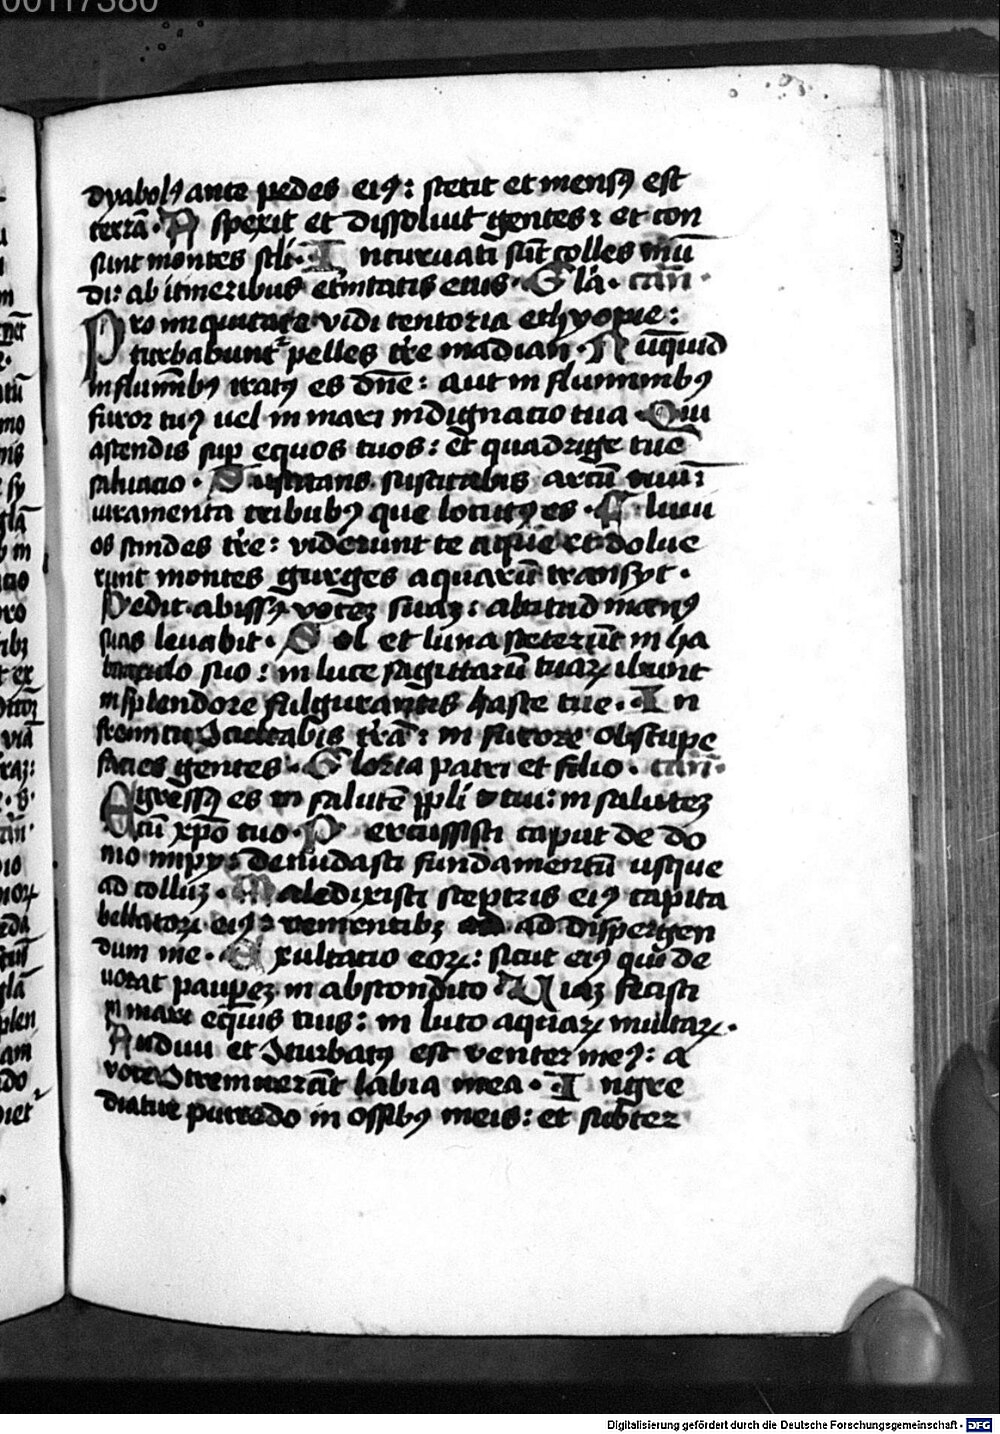 00117380
dyabolꝰ ante pedes eiꝰ: stetit et mensꝰ est
terrā. Aspexit et dissoluit gentes: et con
sunt montes scłi. Incuruati sūt colles mū
di: ab itineribus et̄nitatis eius. Glā. cān.
Pro iniquitate vidi tentoria ethyopie:
turbabunt᷑ pelles tr̄e madian. Nūquid
in flumībꝰ iratꝰ es dn̄e: aut in fluminibꝰ
furor tuꝰ uel in mari indignacio tua. Qui
ascendis sup equos tuos: et quadrige tue
saluacio. Suscitans suscitabis arcū tuū:
iuramenta tribubꝰ que locutꝰ es. Fluui
os scindes tr̄e: viderunt te aque et dolue
runt montes gurges aquarū transyt.
Dedit abissꝰ vocez suaz: altitud manꝰ
suas leuabit. Sol et luna steterūt in ha
bitaculo suo: in luce sagittarū tuaꝝ ibunt
in splendore fulgurantis haste tue. In
fremitu ɔculcabis tr̄ā: in furore obstupe
facies gentes. Gloria patri et filio. cān.
Egressꝰ es in salutē ppłi tui: in salutez
cū xp̄o tuo. Percussisti caput de do
mo impy: denudasti fundamentū usque
ad colluz. Maledixisti sceptris eiꝰ capita
bellatoꝝ eiꝰ: venientibz ad dispergen
dum me. Exultacio eoꝝ: sicut eiꝰ qui de
uorat pauperez in abscondito. Uiaz fecisti
in mari equis tuis: in luto aquaꝝ multaꝝ.
Audiui et ɔturbatꝰ est venter meꝰ: a
voce ɔtremuerāt labia mea. Ingre
diatur putredo in ossibꝰ meis: et subter
Digitalisierung gefördert durch die Deutsche Forschungsgemeinschaft - DFG